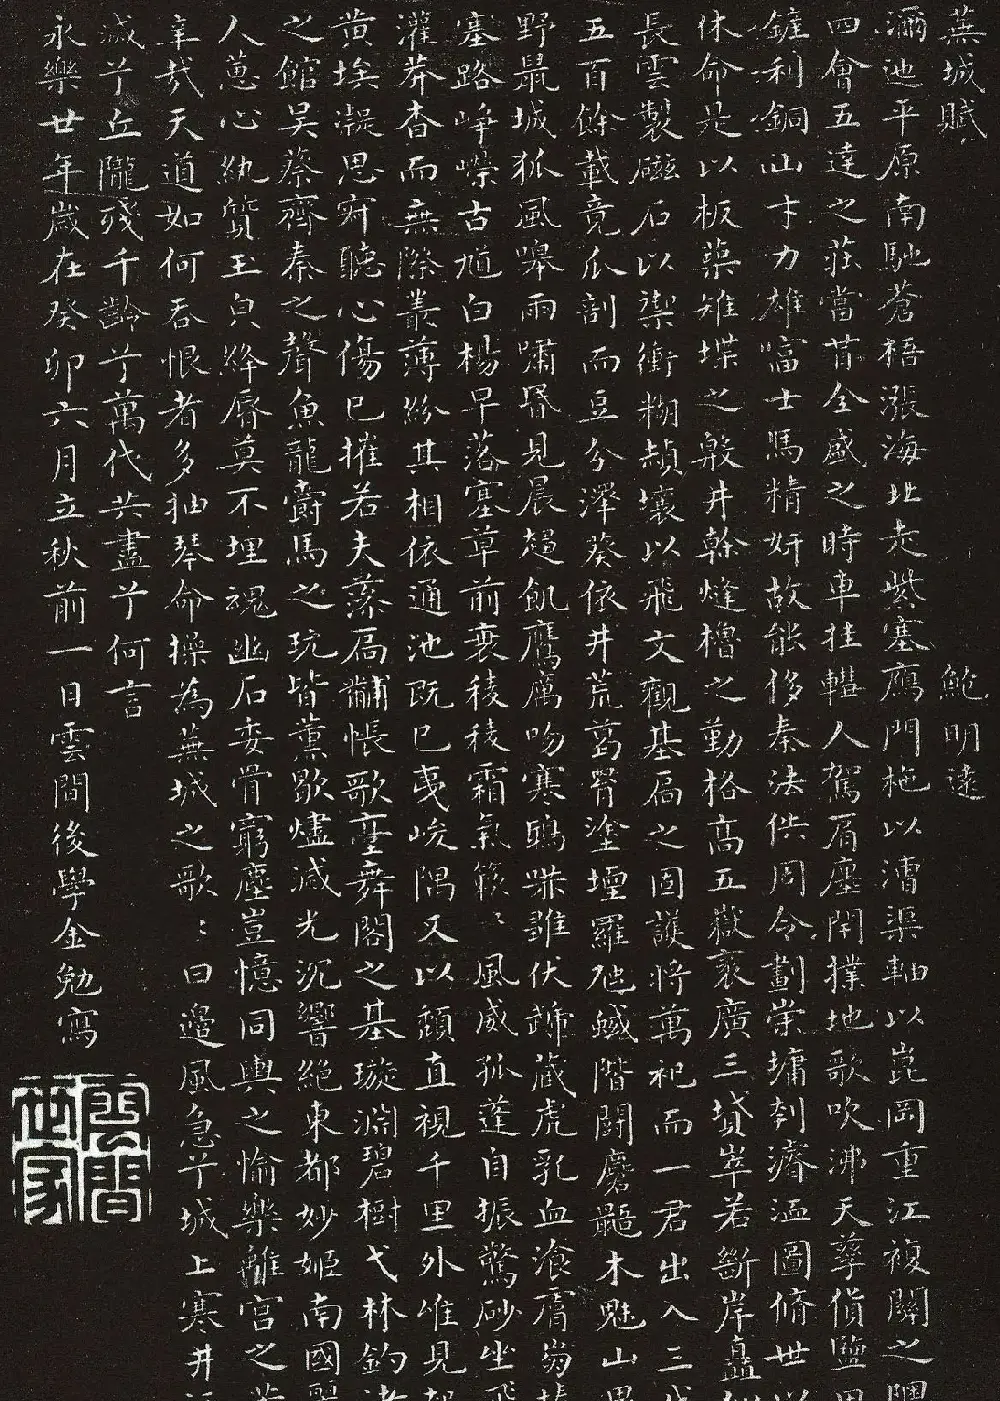 蕪城賦 鮑明遠
瀰迆平原南馳蒼梧漲海北走紫塞鴈門柂以漕渠軸以崑岡重江複關之隩
四會五達之莊當昔全盛之時車挂轊人駕肩廛閈撲地歌吹沸天孳貨鹽田
鏟利銅山才力雄富士馬精妍故能侈秦法佚周令劃崇墉刳濬洫圖脩世以
休命是以板築雉堞之殷井幹烽櫓之勤格高五嶽袤廣三墳崒若斷岸矗似
長雲製磁石以禦衝糊赬壤以飛文觀基扃之固護將萬祀而一君出入三代
五百餘載竟瓜剖而豆分澤葵依井荒葛罥塗壇羅虺蜮階鬭麏鼯木魅山鬼
野鼠城狐風嘷雨嘯昏見晨趨飢鷹厲吻寒鴟嚇雛伏虣藏虎乳血飡膚崩榛
塞路崢嶸古馗白楊早落塞草前衰稜稜霜氣簌〻風威孤蓬自振驚砂坐飛
灌莽杳而無際叢薄紛其相依通池既已夷峻隅又以頹直視千里外唯見起
黃埃凝思寂聽心傷已摧若夫藻扃黼帳歌臺舞閣之基璇淵碧樹弋林釣渚
之館吳蔡齊秦之聲魚龍爵馬之玩皆薰歇燼滅光沉響絕東都妙姬南國麗
人蕙心紈質玉貌絳脣莫不埋魂幽石委骨窮塵豈憶同輿之愉樂離宮之苦
辛哉天道如何吞恨者多抽琴命操為蕪城之歌〻曰邊風急兮城上寒井逕
滅兮丘隴殘千齡兮萬代共盡兮何言
永樂廿年歲在癸卯六月立秋前一日雲間後學金勉寫
雲間世家